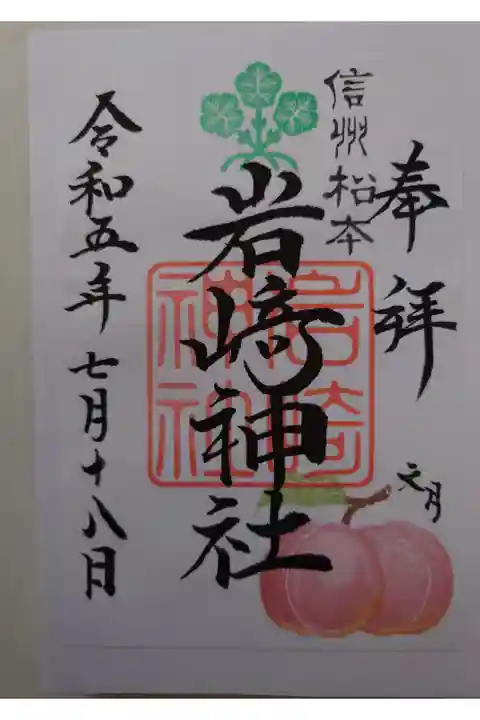 奉拝
信州松本
岩﨑神社
岩崎
神社
文月
令和五年七月十八日